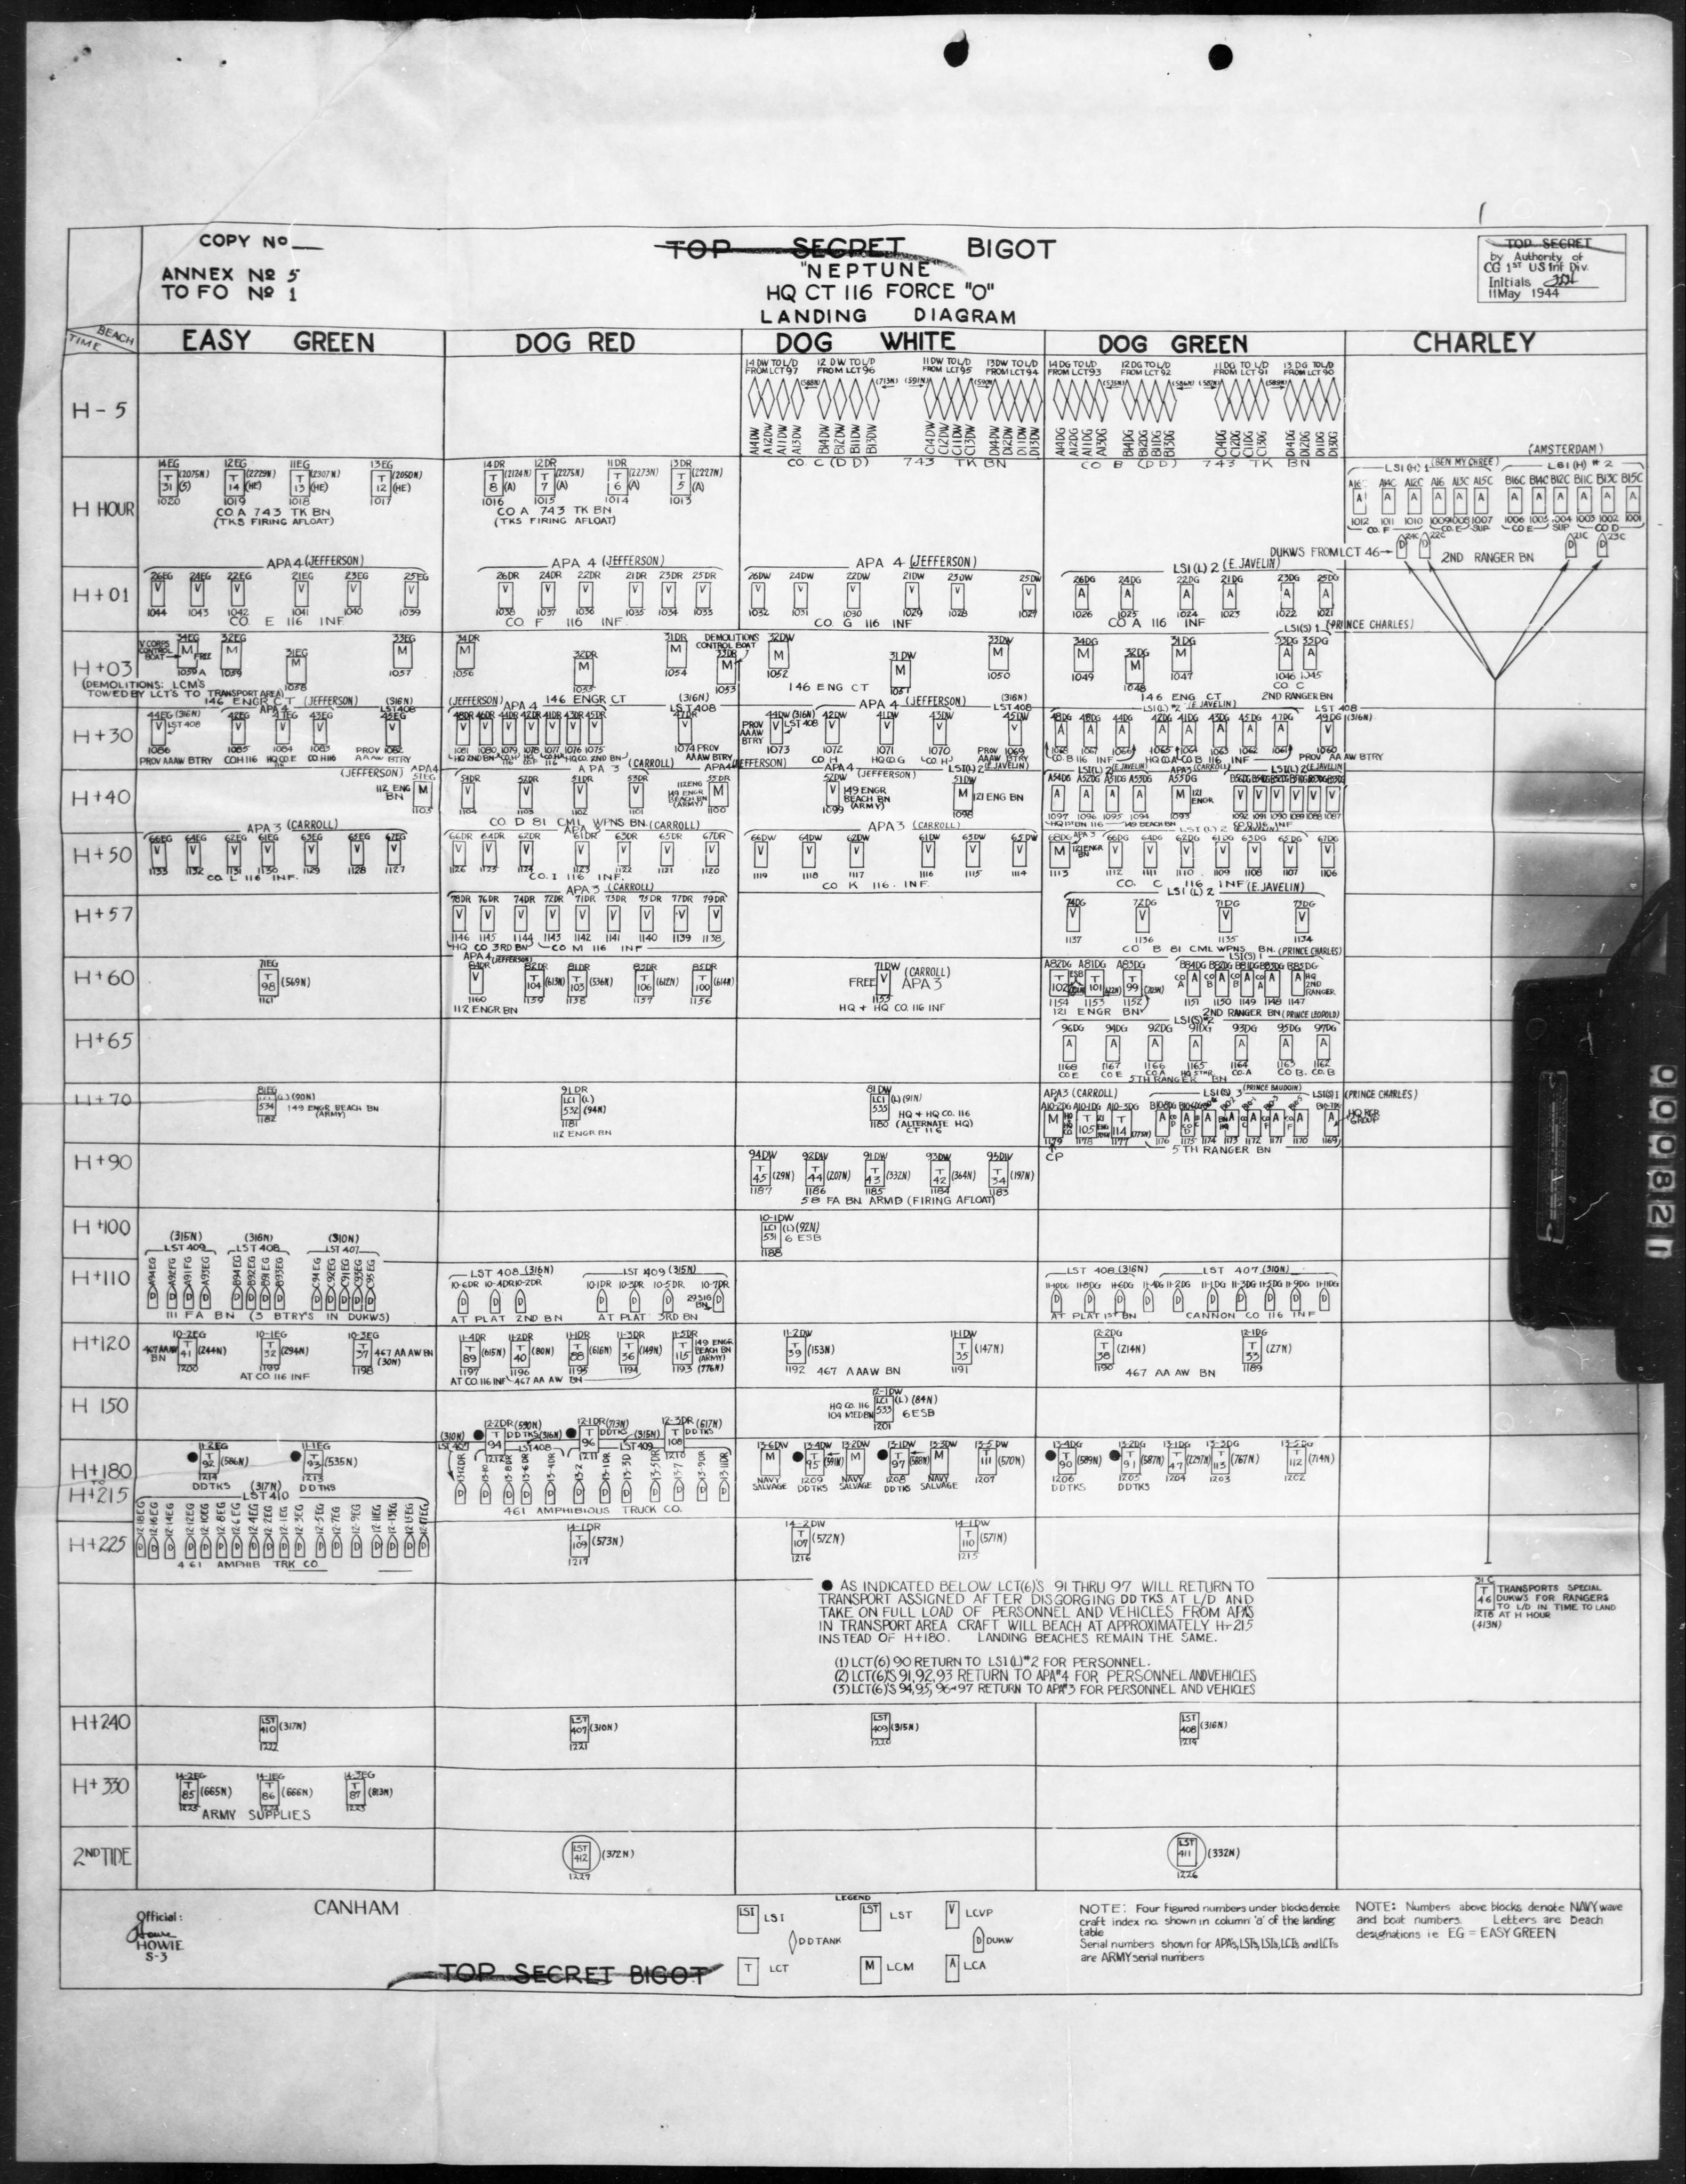 COPY Nº
ANNEX Nº 5
TO FO Nº 1
TOP SECRET BIGOT
"NEPTUNE"
HQ CT 116 FORCE "O"
LANDING DIAGRAM
TOP SECRET
by Authority of
CG 1ST US Inf Div.
Initials
11 May 1944
BEACH
TIME
EASY GREEN
DOG RED
DOG WHITE
DOG GREEN
CHARLEY
H - 5
14 DW TO L/D FROM LCT 97
12 DW TO L/D FROM LCT 96
11 DW TO L/D FROM LCT 95
13DW TO L/D FROM LCT 94
14 DG TO L/D FROM LCT 93
12 DG TO L/D FROM LCT 92
11 DG TO L/D FROM LCT 91
13 DG TO L/D FROM LCT 90
CO C (DD) 743 TK BN
CO B (DD) 743 TK BN
H HOUR
14EG T 31 (2075N) (S) 1020
12EG T 14 (2229N) (HE) 1019
11EG T 13 (2307N) (HE) 1018
13EG T 12 (2050N) (HE) 1017
CO A 743 TK BN
(TKS FIRING AFLOAT)
14 DR T 8 (2124N) (A) 1016
12DR T 7 (2275N) (A) 1015
11DR T 6 (2273N) (A) 1014
13DR T 5 (2227N) (A) 1013
CO A 743 TK BN
(TKS FIRING AFLOAT)
LSI(H) 1 (BEN MY CHREE)
(AMSTERDAM)
LSI(H) # 2
1012 1011 1010 1009 1008 1007
1006 1005 1004 1003 1002 1001
CO. F CO. E SUP CO E SUP CO D
DUKWS FROM LCT 46
2ND RANGER BN
H+01
APA 4 (JEFFERSON)
26EG 24EG 22EG 21EG 23EG 25EG
V V V V V V
1044 1043 1042 1041 1040 1039
CO. E 116 INF
APA 4 (JEFFERSON)
26DR 24DR 22DR 21DR 23DR 25DR
V V V V V V
1038 1037 1036 1035 1034 1033
CO F 116 INF
APA 4 (JEFFERSON)
26DW 24DW 22DW 21DW 23DW 25DW
V V V V V V
1032 1031 1030 1029 1028 1027
CO. G 116 INF
LSI(L) 2 (E. JAVELIN)
26DG 24DG 22DG 21DG 23DG 25DG
A A A A A A
1026 1025 1024 1023 1022 1021
CO A 116 INF
H+03
(DEMOLITIONS: LCM'S
TOWED BY LCT'S TO TRANSPORT AREA)
V CORPS CONTROL BOAT
34EG M FREE 1059A
32EG M 1059
31EG M 1058
33EG M 1057
146 ENGR CT
34DR M 1056
32DR M 1055
31DR M 1054
DEMOLITIONS CONTROL BOAT
33DR M 1053
146 ENGR CT
32DW M 1052
31DW M 1051
33DW M 1050
146 ENG CT
34DG M 1049
32DG M 1048
31DG M 1047
146 ENG CT
LSI(S) 1 (PRINCE CHARLES)
33DG 35DG
A A
1046 1045
CO C
2ND RANGER BN
H+30
APA 4 (JEFFERSON)
44EG (316N) LST 408
42EG 41EG 43EG 45EG
(316N) LST 408
1086 1085 1084 1083 1082
PROV AAAW BTRY CO H 116 HQ CO. E CO. H 116 PROV AAAW BTRY
(JEFFERSON) APA 4
48DR 46DR 44DR 42DR 41DR 43DR 45DR 47DR
(316N) LST 408
1081 1080 1079 1078 1077 1076 1075 1074
HQ 2ND BN HQ CO. 2ND BN PROV AAAW BTRY
APA 4 (JEFFERSON)
PROV AAAW BTRY
44DW (316N) LST 408
42DW 41DW 43DW 45DW
(316N) LST 408
1073 1072 1071 1070 1069
CO H HQ CO G CO. H PROV AAAW BTRY
LSI(L) #2 (E. JAVELIN)
LST 408
49DG (316N)
CO. B 116 INF HQ CO A CO B 116 INF PROV AA AW BTRY
H+40
(JEFFERSON) APA 4
112 ENG BN
51EG M 1103
APA 3 (CARROLL)
54DR 52DR 51DR 53DR 55DR
1104 1103 1102 1101 1100
CO. D 81 CML WPNS BN.
112 ENG
149 ENGR BEACH BN (ARMY)
APA4 (JEFFERSON)
52DW V 149 ENGR BEACH BN (ARMY) 1099
LSI(L) 2 (E. JAVELIN)
51DW M 121 ENG BN 1098
A54DG A52DG A51DG A53DG A55DG
A A A A M 121 ENGR
1097 1096 1095 1094 1093
1092 1091 1090 1089 1088 1087
HQ 1ST BN 116 149 BEACH BN CO D 116 INF
H+50
APA 3 (CARROLL)
66EG 64EG 62EG 61EG 63EG 65EG 67EG
V V V V V V V
1133 1132 1131 1130 1129 1128 1127
CO. L 116 INF.
APA 3 (CARROLL)
66DR 64DR 62DR 61DR 63DR 65DR 67DR
V V V V V V V
1126 1125 1124 1123 1122 1121 1120
CO. I 116 INF.
APA 3 (CARROLL)
66DW 64DW 62DW 61DW 63DW 65DW
V V V V V V
1119 1118 1117 1116 1115 1114
CO K 116. INF.
68DG APA 3 66DG 64DG 62DG 61DG 63DG 65DG 67DG
M 121 ENGR BN V V V V V V V
1113 1112 1111 1110 1109 1108 1107 1106
CO. C 116 INF (E. JAVELIN)
H+57
APA 3 (CARROLL)
78DR 76DR 74DR 72DR 71DR 73DR 75DR 77DR 79DR
V V V V V V V V V
1146 1145 1144 1143 1142 1141 1140 1139 1138
HQ CO 3RD BN CO M 116 INF
LSI(L) 2
74DG 72DG 71DG 73DG
V V V V
1137 1136 1135 1134
CO B 81 CML WPNS BN. (PRINCE CHARLES)
H+60
71EG T 98 (569N) 1161
APA 4 (JEFFERSON)
84DR 82DR 81DR 83DR 85DR
V T 104 (613N) T 103 (536N) T 106 (612N) T 100 (614N)
1160 1159 1158 1157 1156
112 ENGR BN
71DW FREE V (CARROLL) APA 3 1155
HQ + HQ CO. 116 INF
LSI(S) 1
A82DG A81DG A83DG B84DG B82DG B81DG B83DG B85DG
T 102 T 101 T 99
1154 1153 1152 1151 1150 1149 1148 1147
HQ 2ND RANGER
121 ENGR BN 2ND RANGER BN (PRINCE LEOPOLD)
H+65
LSI(S) #2
96DG 94DG 92DG 91DG 93DG 95DG 97DG
A A A A A A A
1168 1167 1166 1165 1164 1163 1162
CO E CO E CO. A HQ 5TH R CO. A CO B. CO. B
5TH RANGER BN
H+70
81EG LCI (L) (90N) 534 1182
149 ENGR BEACH BN (ARMY)
91DR LCI (L) 532 (94N) 1181
112 ENGR BN
81DW LCI (L) (91N) 535 1180
HQ + HQ CO. 116
(ALTERNATE HQ)
CT 116
APA3 (CARROLL)
LSI(S) 3 (PRINCE BAUDOIN)
LSI(S) 1 (PRINCE CHARLES)
A10-2DG A10-1DG A10-3DG
M T 105 T 114
1179 1178 1177 1176 1175 1174 1173 1172 1171 1170 1169
HQ RGR GROUP
CP
5 TH RANGER BN
H+90
94DW 92DW 91DW 93DW 95DW
T 45 (29N) T 44 (207N) T 43 (332N) T 42 (364N) T 34 (197N)
1187 1186 1185 1184 1183
58 FA BN. ARMD (FIRING AFLOAT)
H+100
10-1DW LCI (L) (92N) 531 6 ESB 1188
H+110
(315N) LST 409
(316N) LST 408
(310N) LST 407
A94EG A92EG A91EG A93EG B94EG B92EG B91EG B93EG C94EG C92EG C91EG C93EG C95EG
111 FA BN (3 BTRY'S IN DUKWS)
LST 408 (316N)
LST 409 (315N)
10-6DR 10-4DR 10-2DR 10-1DR 10-3DR 10-5DR 10-7DR
29 SIG BN
AT PLAT 2ND BN AT PLAT 3RD BN
LST 408 (316N)
LST 407 (310N)
11-10DG 11-8DG 11-6DG 11-4DG 11-2DG 11-1DG 11-3DG 11-5DG 11-9DG 11-11DG
AT PLAT 1ST BN CANNON CO 116 INF
H+120
467 AAAW BN
10-2EG T 41 (244N) 1200
10-1EG T 32 (294N) 1199
10-3EG T 37 467 AA AW BN (30N) 1198
AT CO. 116 INF
11-4DR T 89 (615N) 1197
11-2DR T 40 (80N) 1196
11-1DR T 88 (616N) 1195
11-3DR T 36 (149N) 1194
11-5DR T 115 149 ENGR BEACH BN (ARMY) 1193 (776N)
AT CO. 116 INF 467 AA AW BN
11-2DW T 39 (153N) 1192
11-1DW T 35 (147N) 1191
467 A AAW BN
12-2DG T 38 (214N) 1190
12-1DG T 33 (27N) 1189
467 AA AW BN
H 150
HQ CO. 116
104 MED BN
12-1DW LCI (L) (84N) 533 6 ESB 1201
H+180
TO
H+215
11-2EG T 92 (586N) 1214 DD TKS
11-1EG T 93 (535N) 1213 DD TKS
(317N)
LST 410
12-2DR (590N) T 94 DD TKS 1212
12-1DR (713N) T 96 DD TKS 1211
12-3DR (617N) T 108 DD TKS 1210
(310N) LST 407
(316N) LST 408
(315N) LST 409
461 AMPHIBIOUS TRUCK CO.
13-6DW M NAVY SALVAGE
13-4DW T 95 (591N) 1209 DD TKS
13-2DW M NAVY SALVAGE
13-1DW T 97 (588N) 1208 DD TKS
13-3DW M NAVY SALVAGE
13-5 DW T 111 (570N) 1207
13-4DG T 90 (589N) 1206 DD TKS
13-2DG T 91 (587N) 1205 DD TKS
13-1DG T 47 (2297N) 1204
13-3DG T 113 (767N) 1203
13-5DG T 112 (714N) 1202
H+225
461 AMPHIB TRK CO
14-1DR T 109 (573N) 1217
14-2DW T 107 (572N) 1216
14-1DW T 110 (571N) 1215
● AS INDICATED BELOW LCT(6)'S 91 THRU 97 WILL RETURN TO
TRANSPORT ASSIGNED AFTER DISGORGING DD TKS AT L/D AND
TAKE ON FULL LOAD OF PERSONNEL AND VEHICLES FROM APA'S
IN TRANSPORT AREA CRAFT WILL BEACH AT APPROXIMATELY H+215
INSTEAD OF H+180. LANDING BEACHES REMAIN THE SAME.
(1) LCT(6) 90 RETURN TO LSI(L)#2 FOR PERSONNEL.
(2) LCT(6)'S 91, 92, 93 RETURN TO APA#4 FOR PERSONNEL AND VEHICLES
(3) LCT(6)'S 94, 95, 96+97 RETURN TO APA#3 FOR PERSONNEL AND VEHICLES
31 C T 46 1218 (413N)
TRANSPORTS SPECIAL
DUKWS FOR RANGERS
TO L/D IN TIME TO LAND
AT H HOUR
H+240
LST 410 (317N) 1222
LST 407 (310N) 1221
LST 409 (315N) 1220
LST 408 (316N) 1219
H+330
14-2EG T 85 (665N) 1225
14-1EG T 86 (666N) 1224
14-3EG T 87 (813N) 1223
ARMY SUPPLIES
2ND TIDE
LST 412 (372N) 1227
LST 411 (332N) 1226
CANHAM
Official:
Howie
HOWIE
S-3
TOP SECRET BIGOT
LEGEND
LSI LSI
LST LST
V LCVP
DD TANK
D DUKW
T LCT
M LCM
A LCA
NOTE: Four figured numbers under blocks denote
craft index no. shown in column 'a' of the landing
table
Serial numbers shown for APA's, LSTs, LSIs, LCIs and LCTs
are ARMY serial numbers
NOTE: Numbers above blocks denote NAVY wave
and boat numbers. Letters are beach
designations ie EG = EASY GREEN
000821